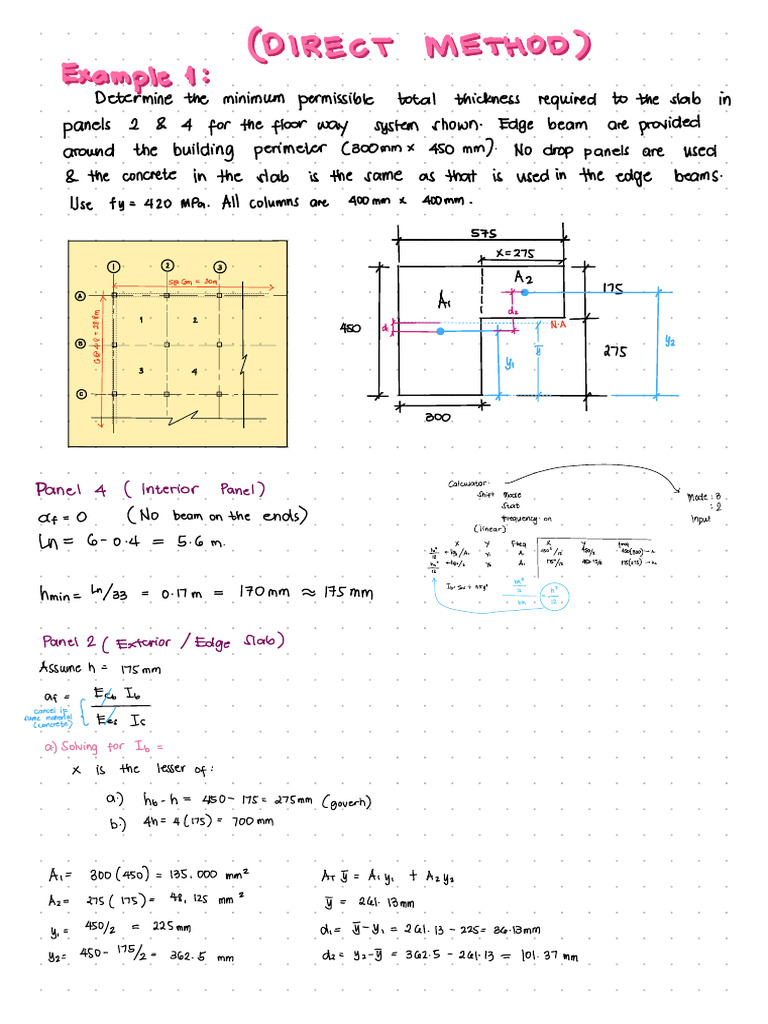 (DIRECT METHOD)
Example 1:
Determine the minimum permissible total thickness required to the slab in
panels 2 & 4 for the floor way system shown. Edge beam are provided
around the building perimeter (300mm x 450 mm). No drop panels are used
& the concrete in the slab is the same as that is used in the edge beams.
Use fy = 420 MPa. All columns are 400 mm x 400mm.
1 2 3
5@6m = 30m
A
B
C
1 2
3 4
575
x=275
A1
A2
175
d2
N.A
450
d1
y1
ȳ
y2
275
300
Panel 4 (Interior Panel)
αf = 0 (No beam on the ends)
Ln = 6-0.4 = 5.6 m.
hmin = Ln/33 = 0.17 m = 170 mm ≈ 175 mm
Calculator.
Shift Mode
Stat
frequency. on
(linear)
Mode : 3
: 2
Input
X Y Freq
X Y freq
h²/12
Panel 2 (Exterior / Edge Slab)
Assume h = 175 mm
αf = Ecb Ib
Ecs Is
cancel if
same material
(concrete)
a) Solving for Ib =
x is the lesser of:
a.) hb - h = 450 - 175 = 275mm (govern)
b.) 4h = 4(175) = 700 mm
A1 = 300(450) = 135,000 mm²
A2 = 275(175) = 48,125 mm²
y1 = 450/2 = 225 mm
y2 = 450 - 175/2 = 362.5 mm
AT ȳ = A1 y1 + A2 y2
ȳ = 261.13 mm
d1 = ȳ - y1 = 261.13 - 225 = 36.13mm
d2 = y2 - ȳ = 362.5 - 261.13 = 101.37 mm